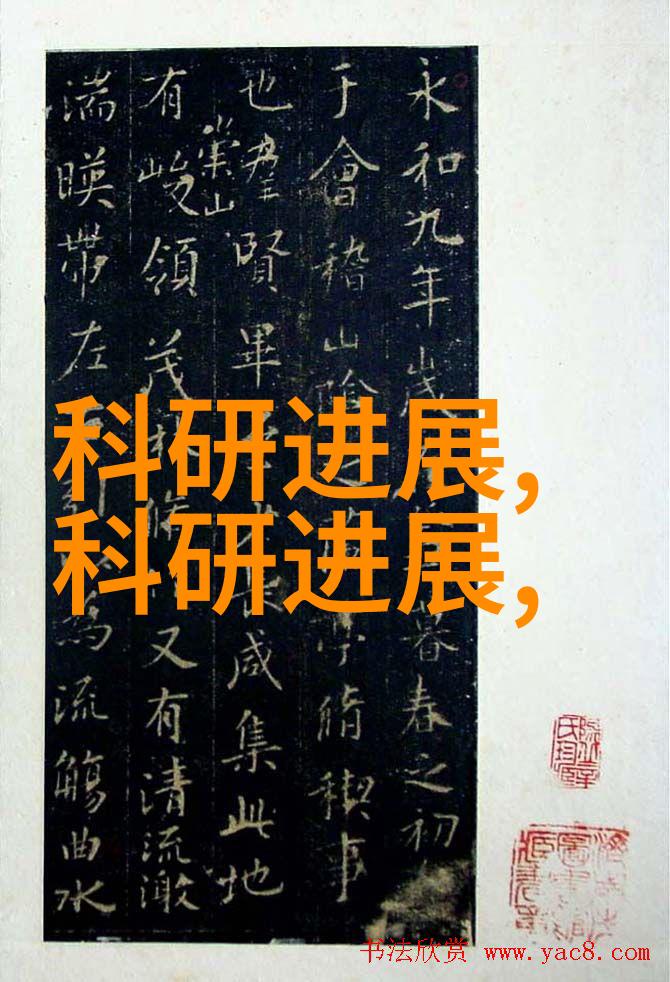 永和九年歲暮春之初
于會稽山陰之亭脩禊事
也羣賢畢至少長咸集此地
有崇山峻領茂林脩竹又有清流激
湍暎帶左右引以為流觴曲水
科研进展,
科研进展,
书法欣赏 www.yac8.com